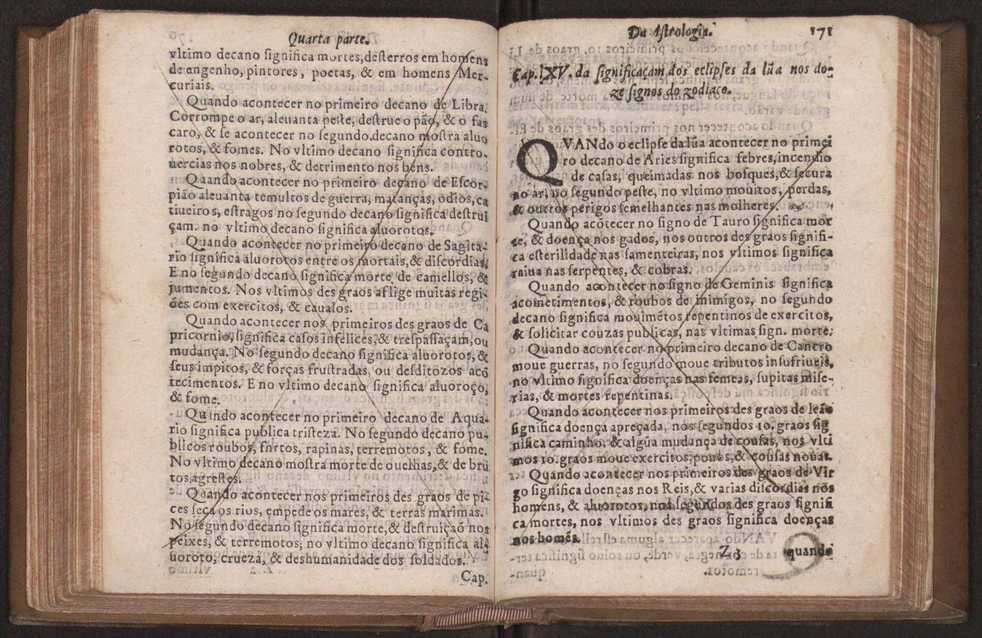 Quarta parte.
vltimo decano significa mortes, desterros em homens
de engenho, pintores, poetas, & em homens Mer-
curiais.
Quando acontecer no primeiro decano de Libra.
Corrompe o ar, aleuanta peste, destrue o pão, & o faz
caro, & se acontecer no segundo.decano mostra aluo
rotos, & fomes. No vltimo decano significa contro-
uercias nos nobres, & detrimento nos bens.
Quando acontecer no primeiro decano de Escor-
pião aleuanta temultos de guerra, matanças, odios, ca
tiueiros, estragos no segundo decano significa destrui
çam. no vltimo decano significa aluorotos.
Quando acontecer no primeiro decano de Sagita-
rio significa aluorotos entre os mortais, & discordias.
E no segundo decano significa morte de camellos, &
jumentos. Nos vltimos des graos aflige muitas regi-
ões com exercitos, & caualos.
Quando acontecer nos primeiros des graos de Ca
pricornio, significa casos infelices, & trespassaçam, ou
mudança. No segundo decano significa aluorotos, &
seus impitos, & forças frustradas, ou desditozos acõ
tecimentos. E no vltimo decano significa aluoroço,
& fome.
Quando acontecer no primeiro decano de Aqua-
rio significa publica tristeza. No segundo decano pu-
blicos roubos, furtos, rapinas, terremotos, & fome.
No vltimo decano mostra morte de ouelhas, & de bru
tos, agrestes.
Quando acontecer nos primeiros des graos de pi-
ces seca os rios, empede os mares, & terras marimas.
No segundo decano significa morte, & destruição nos
peixes, & terremotos; no vltimo decano significa al-
uoroto, crueza, & deshumanidade dos soldados.
Cap.
Da Astrologia. 171
Cap. lXV. da significaçam dos eclipses da lũa nos do-
ze signos do zodiaco.
QVANdo o eclipse da lũa acontecer no primei
ro decano de Aries significa febres, incendio
de casas, queimadas nos bosques, & secura
no ar, no segundo peste, no vltimo mouitos, perdas,
& outros perigos semelhantes nas molheres.
Quando acõtecer no signo de Tauro significa mor
te, & doença nos gados, nos outros des graos signifi-
ca esterilidade nas samenteiras, nos vltimos significa
raiua nas serpentes, & cobras.
Quando acontecer no signo de Geminis significa
acometimentos, & roubos de inimigos, no segundo
decano significa mouimẽtos repentinos de exercitos,
& solicitar couzas publicas, nas vltimas sign. morte.
Quando acontecer no primeiro decano de Cancro
moue guerras, no segundo moue tributos insufriueis,
no vltimo significa doenças nas femeas, supitas mise-
rias, & mortes repentinas.
Quando acontecer nos primeiros des graos de leão
significa doença apreçada, nos segundos 10. graos sig
nifica caminho, & algũa mudança de cousas, nos vlti
mos 10. graos moue exercitos, pouos, & cousas nouas.
Quando acontecer nos primeiros des graos de Vir
go significa doenças nos Reis, & varias discordias nos
homẽns, & aluorotos, nos segundos des graos signifi
ca mortes, nos vltimos des graos significa doenças
nos homẽs.
Z 3 quando